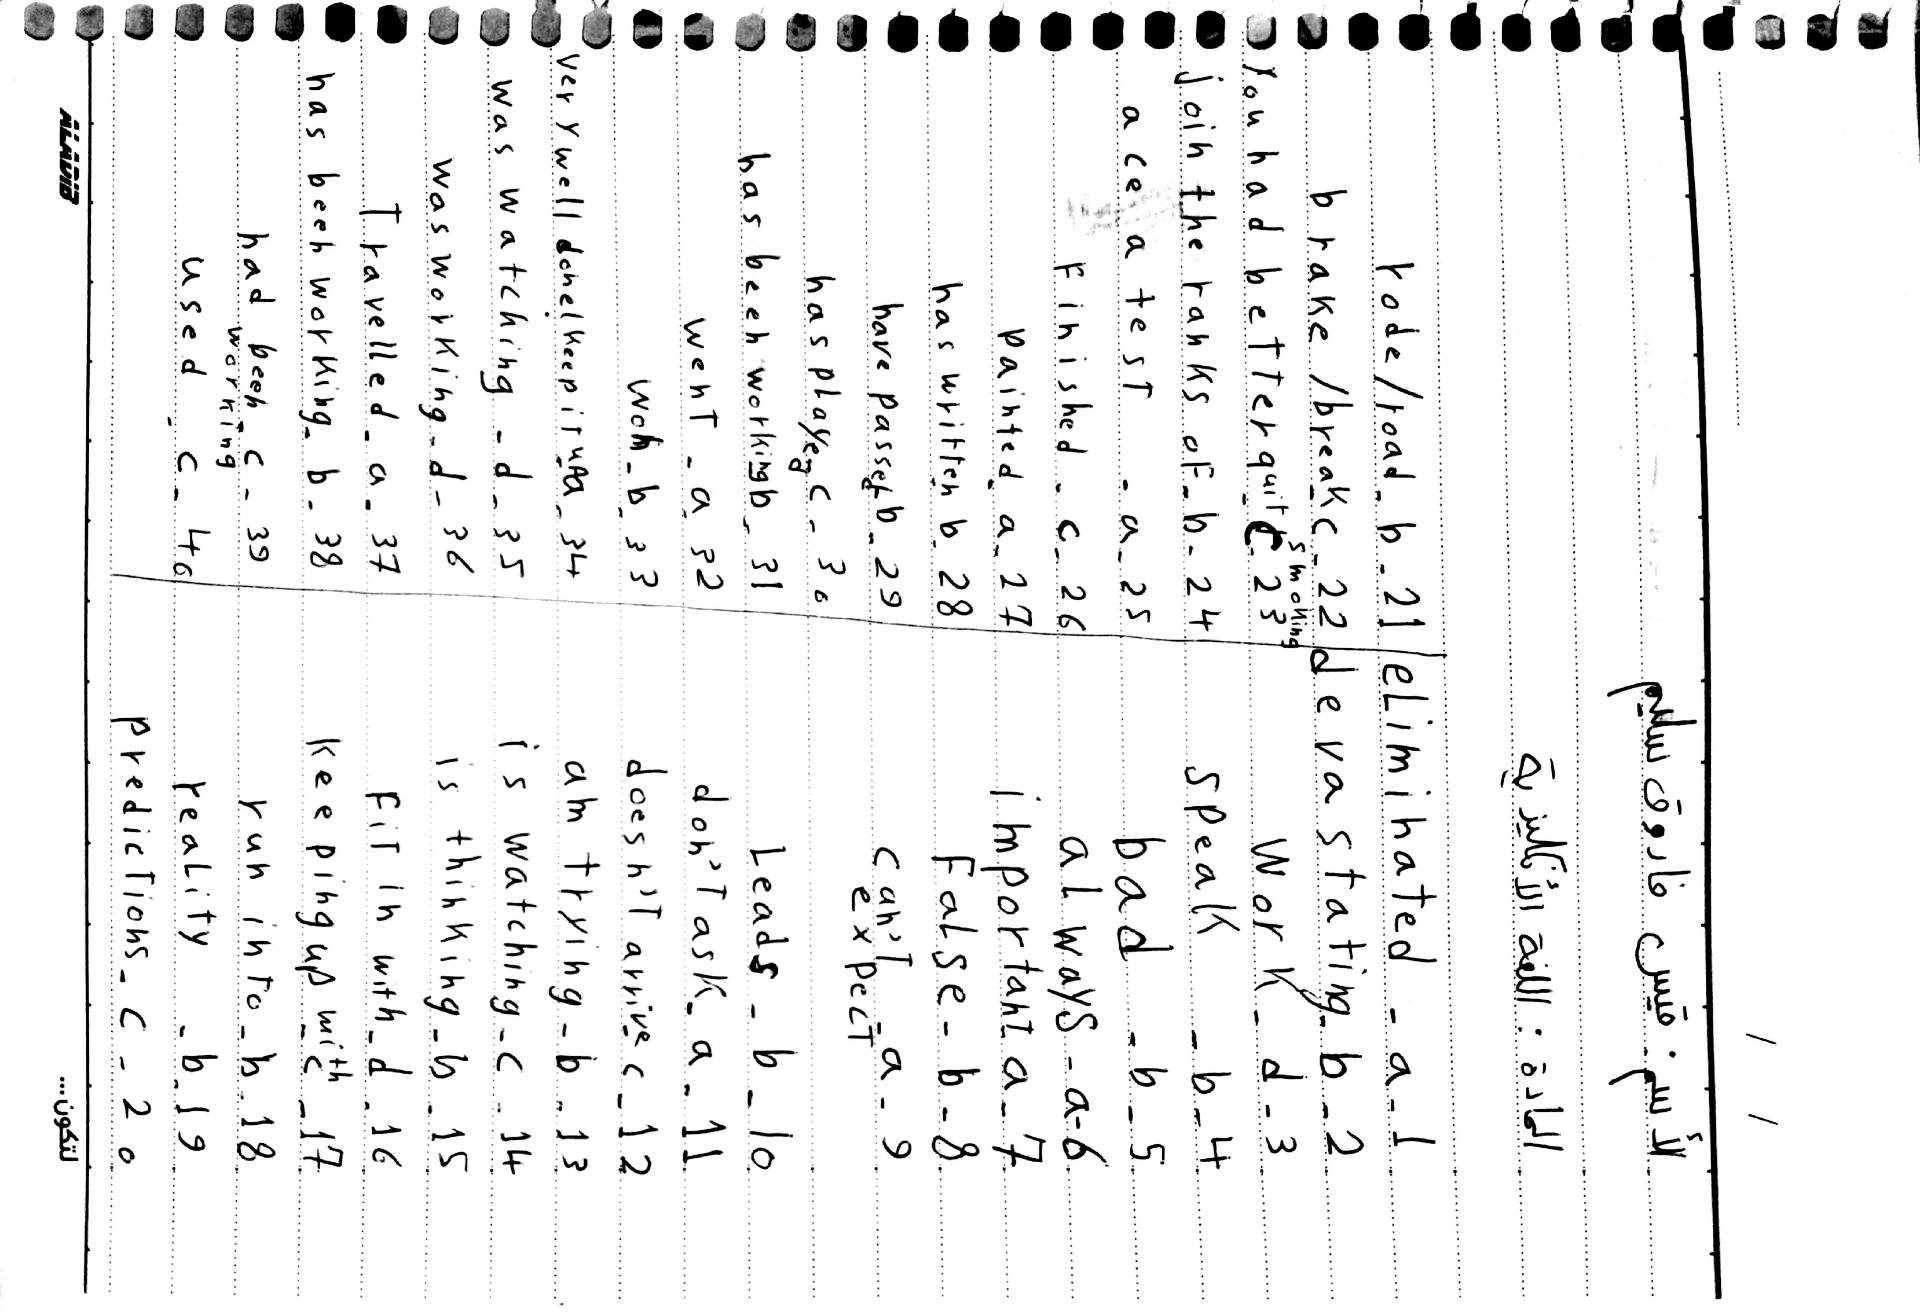 الأسم : قيس فاروق سليم
المادة : اللغة الأنكليزية
eliminated - a - 1
devastating - b - 2
work - d - 3
speak - b - 4
bad - b - 5
always - a - 6
important a - 7
False - b - 8
can't expect - a - 9
Leads - b - 10
don't ask - a - 11
doesn't arrive c - 12
am trying - b - 13
is watching - c - 14
is thinking - b - 15
Fit in with - d - 16
keeping up with - c - 17
run into - b - 18
reality - b - 19
predictions - c - 20
rode/road - b - 21
brake/break c - 22
You had better quit smoking c - 23
join the ranks of - b - 24
ace a test - a - 25
Finished - c - 26
painted a - 27
has written b - 28
have passed b - 29
has played c - 30
has been working b - 31
went - a 32
won - b 33
very well done/keep it up a - 34
was watching - d - 35
was working - d - 36
Travelled - a - 37
has been working - b - 38
had been working c - 39
used - c - 40
لتكون....